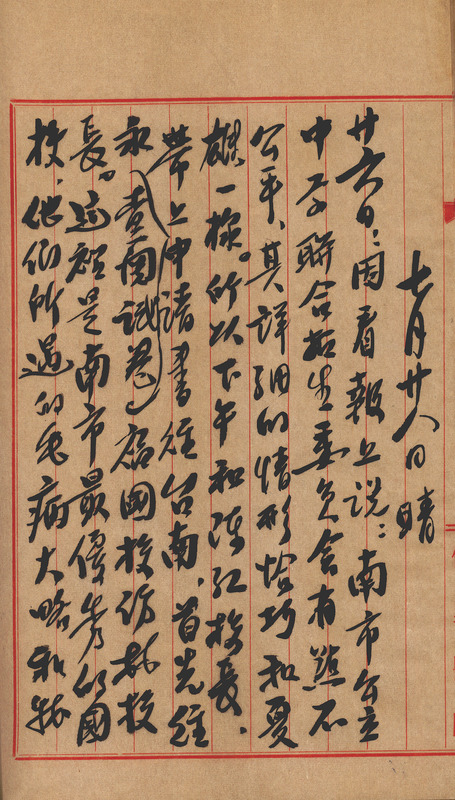 七月廿八日 晴
廿六日:因看報上說:南市公立
中學聯合招生委員會有點不
公平、其詳細的情形恰巧和夏
一樣。所以下午和陳紅校長、
帶上申請書往台南、首先往
永 國校訪林校
長。這裡是南市最優秀的國
校、他們所遇的毛病大略和